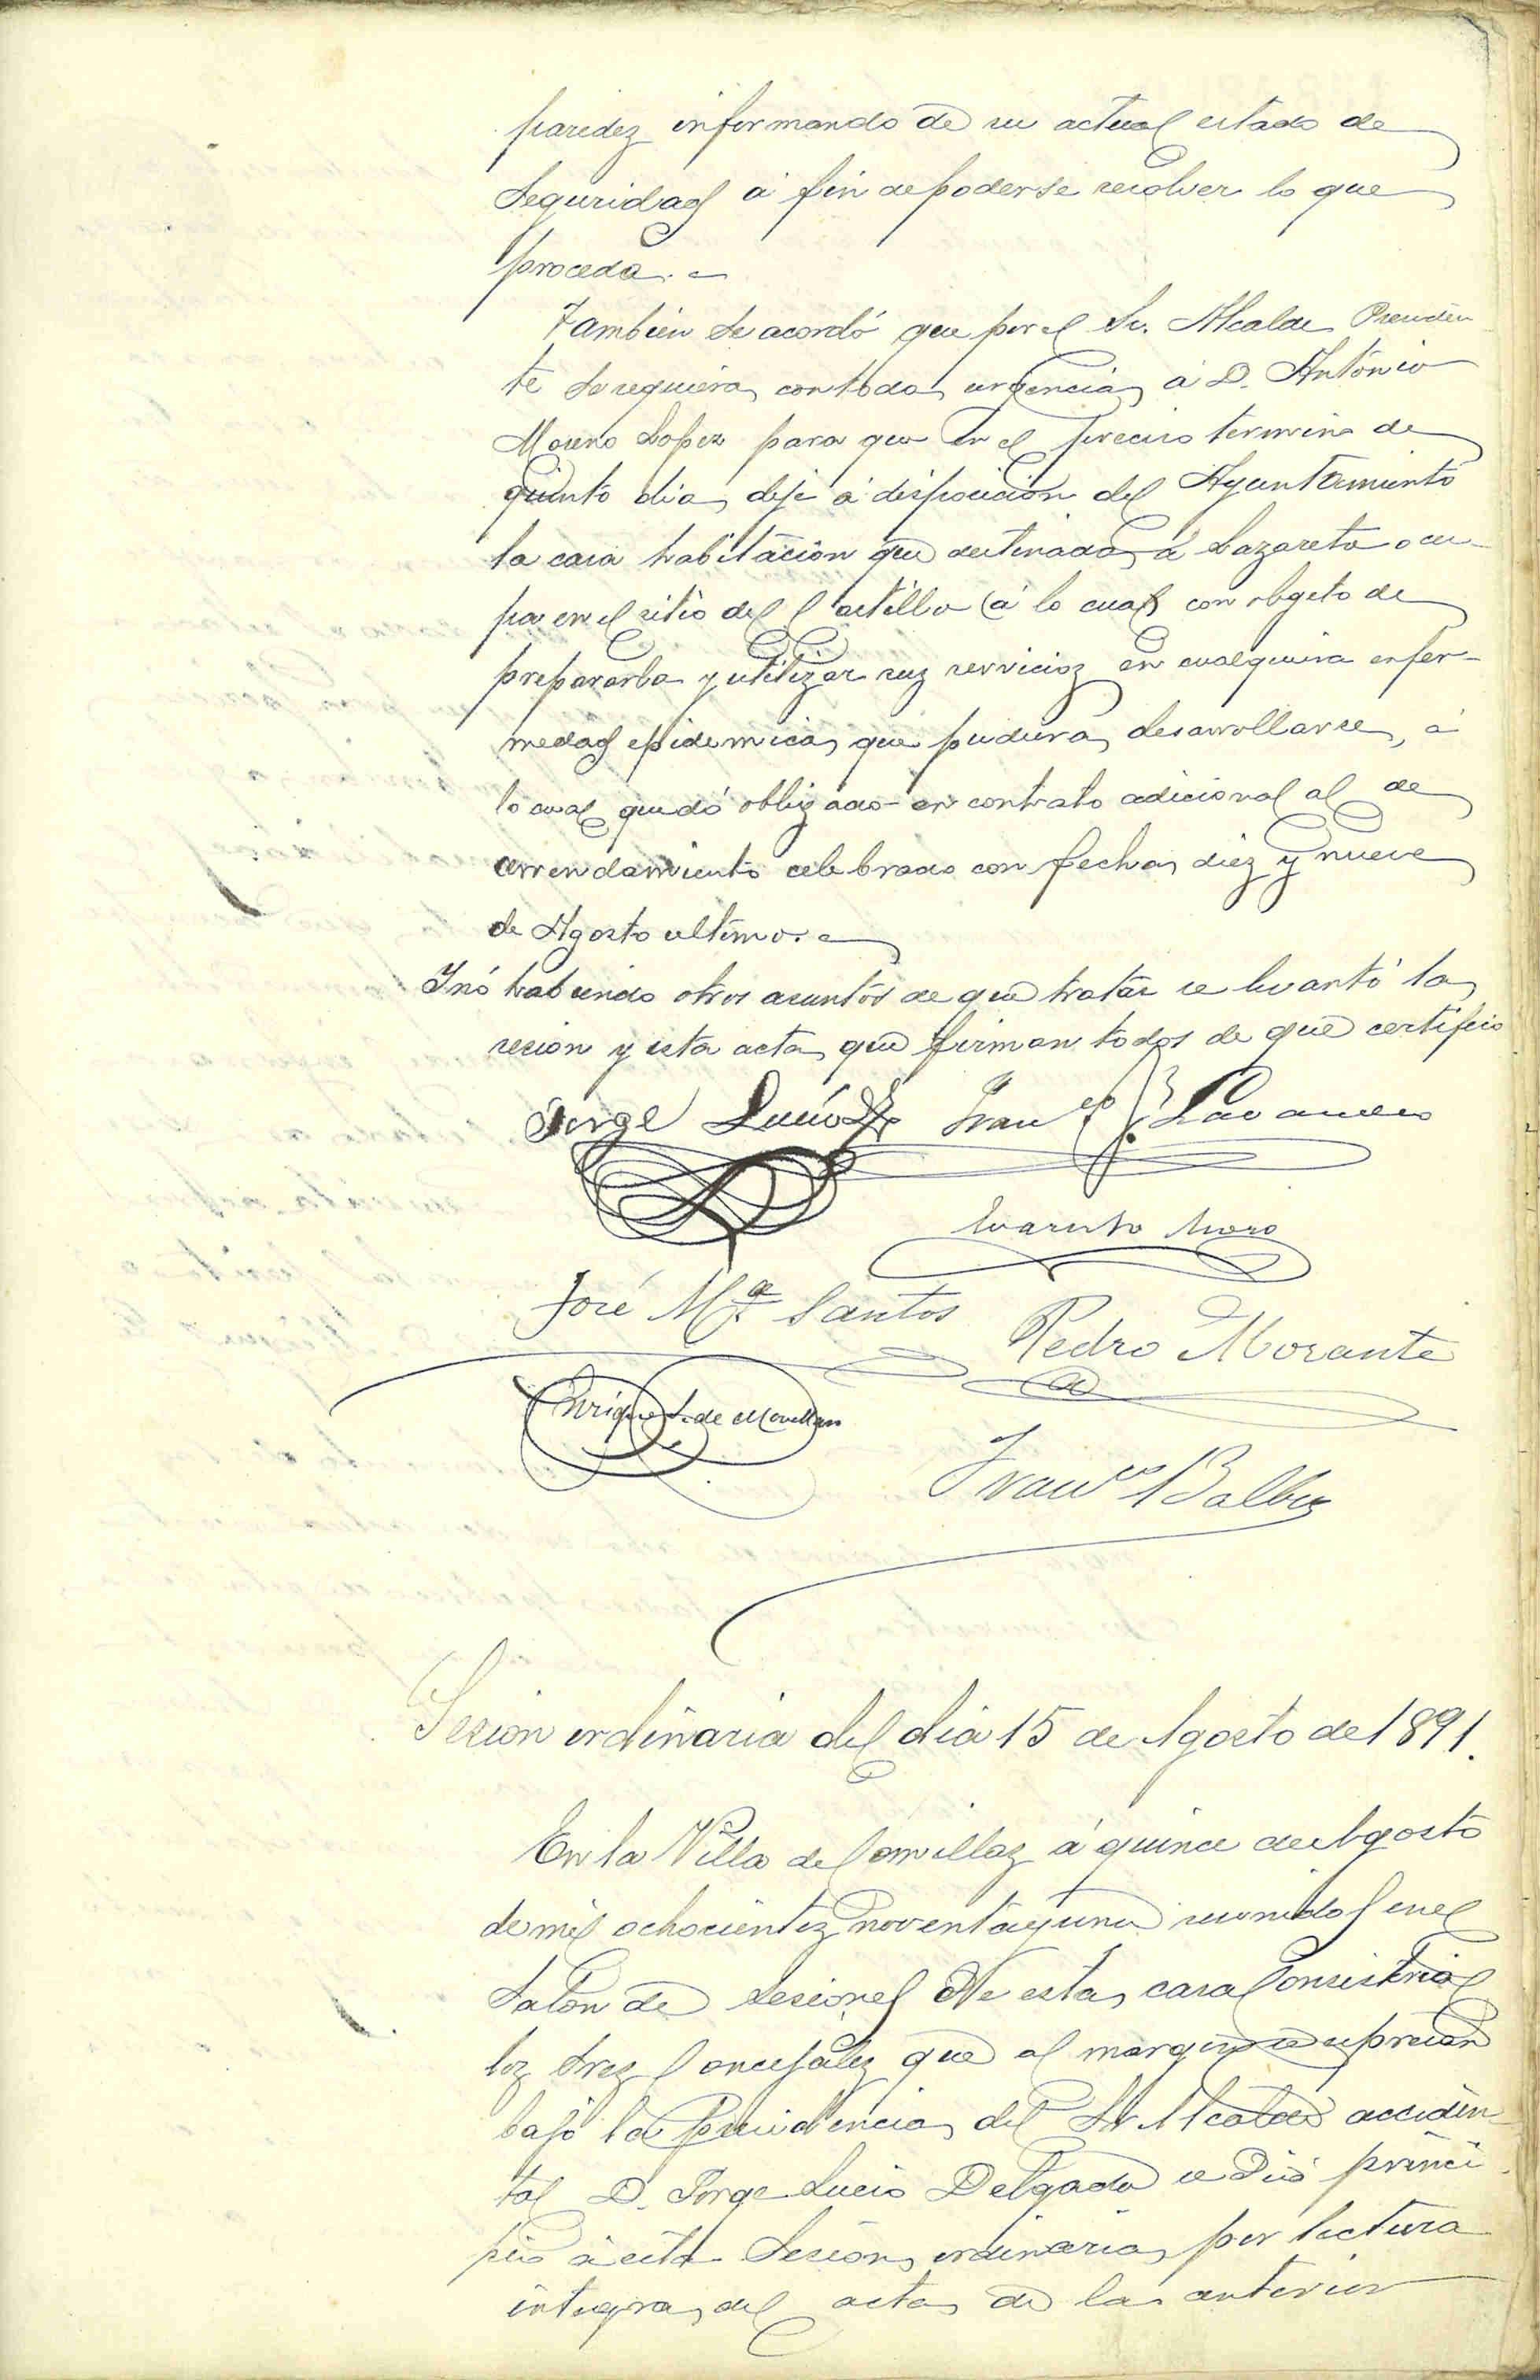 paredez informando de su actual estado de
Seguridad á fin de poderse resolver lo que
proceda.
Tambien se acordó que por el Sr. Alcalde Presiden
te se requiera con toda urgencia á D. Antonio
Moreno Lopez para que en el preciso termino de
quinto dia, deje á disposicion del Ayuntamiento
la casa habitacion que destinada á Lazareto ocu-
pa en el sitio del Castillo (á lo cual con obgeto de
prepararla y utilizar suz servicioz en cualquiera enfer-
medad epidemica que pudiera desarrollarse, á
lo cual quedó obligado en contrato adicional al de
arrendamiento celebrado con fecha diez y nueve
de Agosto ultimo.
Y nó habiendo otros asuntos de que tratar se levantó la
sesion y esta acta que firman todos de que certifico
Jorge Lucio Franco
Evaristo Moro
José Ma. Santos Pedro Morante
Enrique S. de Movellan
Franco Balbas
Sesion ordinaria del dia 15 de Agosto de 1891.
En la Villa de Comillaz á quince de Agosto
de mil ochocientoz noventa y uno reunidos en el
Salon de Sesiones de esta casa Consistorial
loz Srez Concejalez que al margen se espresan
bajo la Presidencia del Sr Alcalde acciden
tal D. Jorge Lucio Delgado se dió princi
pio á esta Sesion ordinaria por lectura
integra del acta de la anterior